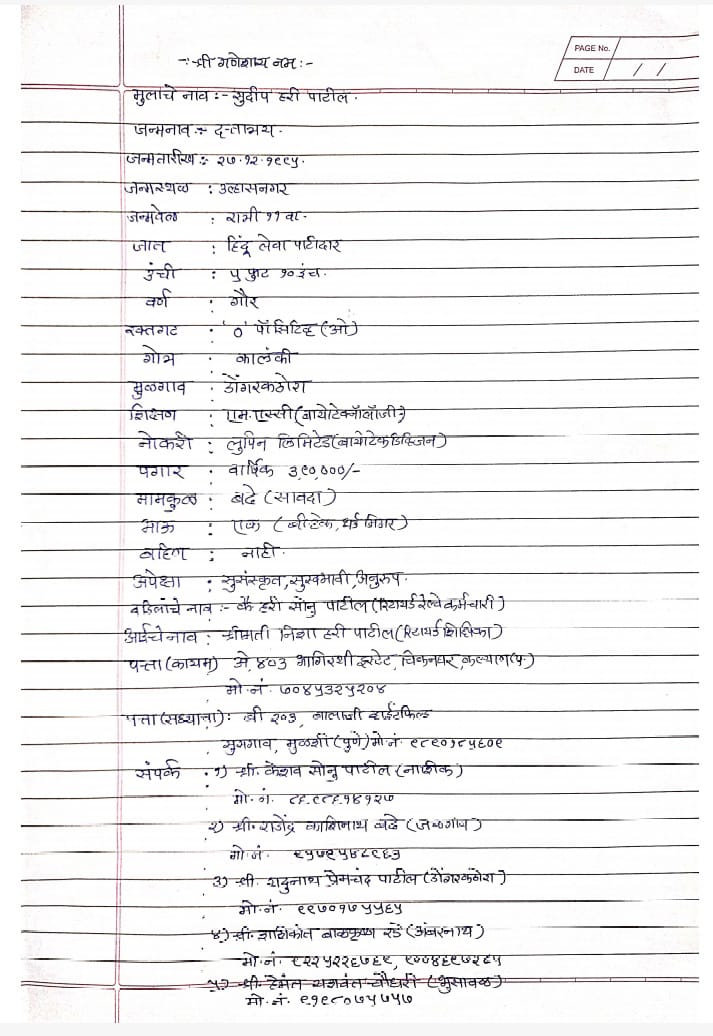 -: श्री गणेशाय नमः :-
PAGE No.
DATE / /
मुलाचे नाव :- सुदीप हरी पाटील.
जन्मनाव :- दत्तात्रय.
जन्मतारीख :- २७.१२.१९९५.
जन्मस्थळ : उल्हासनगर
जन्मवेळ : रात्री ११ वा.
जात : हिंदू लेवा पाटीदार
उंची : ५ फुट १० इंच.
वर्ण : गौर
रक्तगट : 'O' पॉसिटिव्ह (ओ)
गोत्र : कालंकी
मुळगाव : डोंगरकठोरा
शिक्षण : एम.एस्सी (बायोटेक्नॉलॉजी)
नोकरी : लुपिन लिमिटेड (बायोटेक डिव्हिजन)
पगार : वार्षिक ३,९०,०००/-
मामकुळ : बढे (सावदा)
भाऊ : एक (बीटेक, थर्ड इयर)
बहिण : नाही.
अपेक्षा : सुसंस्कृत, सुस्वभावी, अनुरुप.
वडिलांचे नाव :- कै हरी सोनु पाटील (रिटायर्ड रेल्वे कर्मचारी)
आईचे नाव : श्रीमती निशा हरी पाटील (रिटायर्ड शिक्षिका)
पत्ता (कायम) ओ, ४०३ भागिरथी इस्टेट, चिकनघर, कल्याण (प.)
मो.नं. ७०४५३२५२०४
पत्ता (सध्याचा) : बी २०३, बालाजी व्हाईटफिल्ड
सुसगाव, मुळशी (पुणे) मो नं.
संपर्क : १) श्री. केशव सोनु पाटील (नाशिक)
मो. नं.
२) श्री. राजेंद्र काशिनाथ बढे (जळगाव)
मो. नं.
३) श्री. यदुनाथ प्रेमचंद पाटील (डोंगरकठोरा)
मो. नं. ९९७०१७५५६५
४) श्री. शशिकांत बाळकृष्ण रडे (अंबरनाथ)
मो. नं.
५) श्री. हेमंत यशवंत चौधरी (भुसावळ)
मो. नं. ९१९८०७५५५७